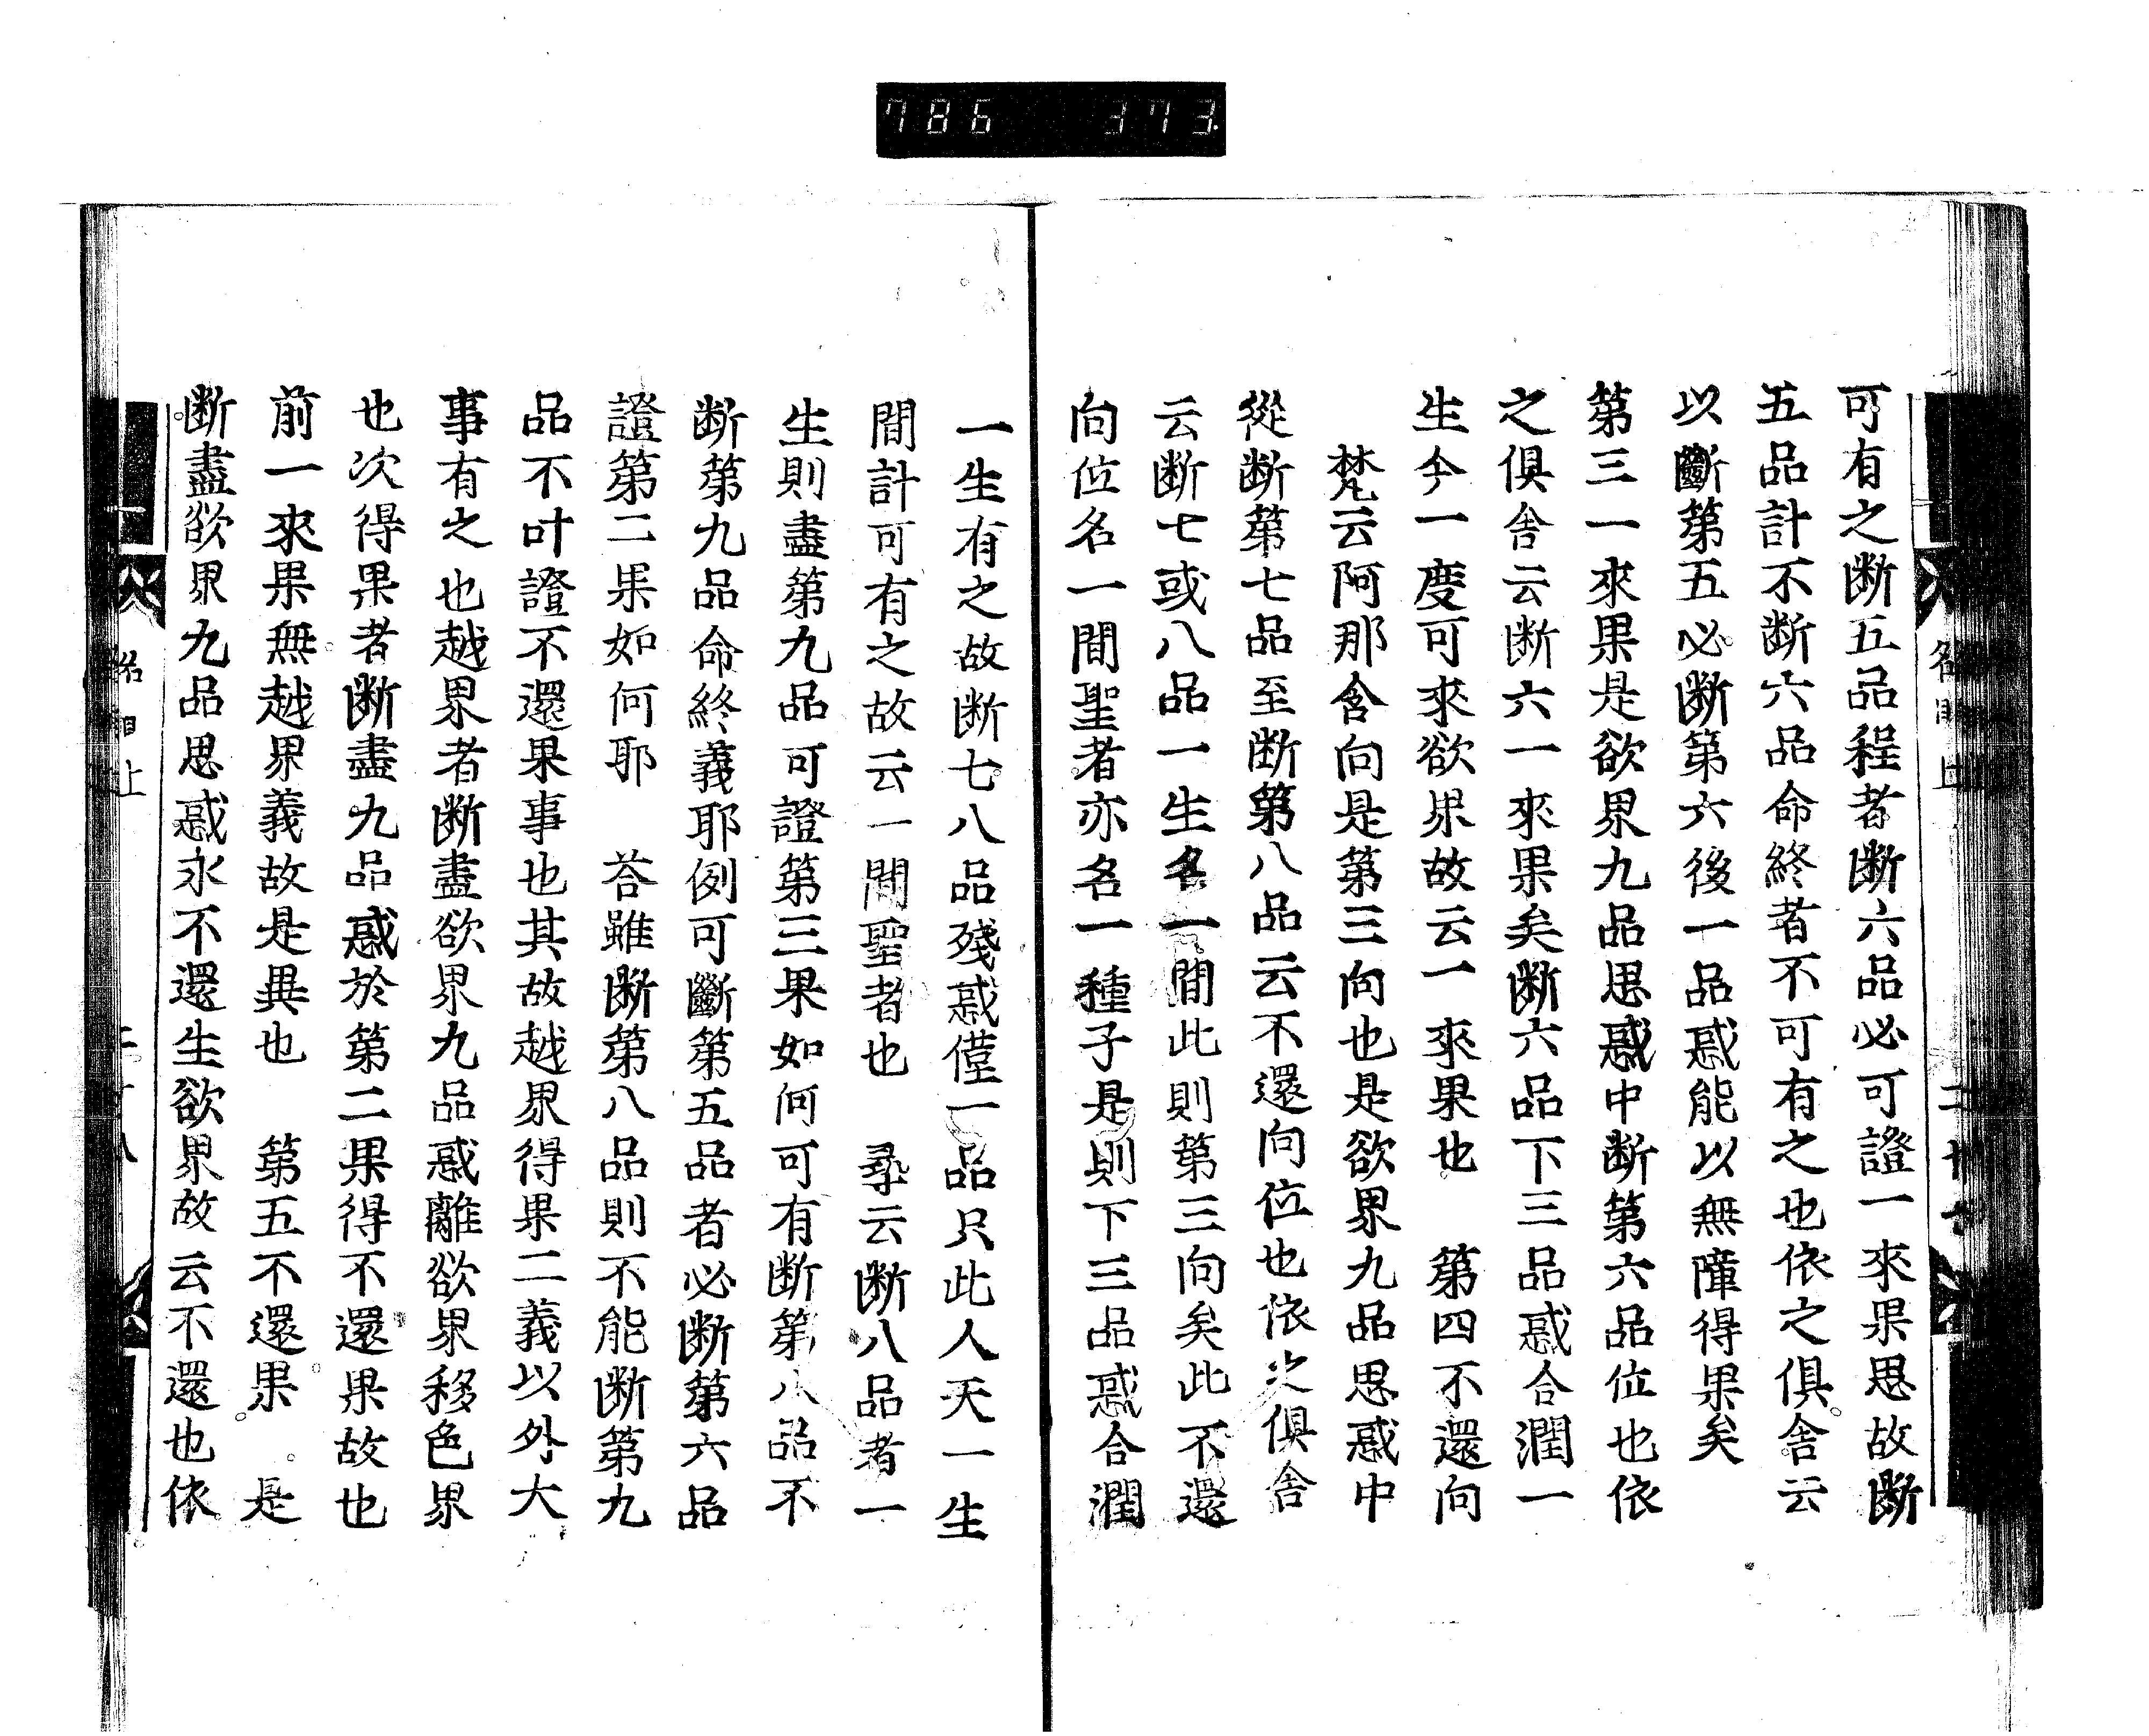 786 373
可有之断五品程者断六品必可證一來果思故断
五品計不断六品命終者不可有之也依之俱舍云
以斷第五必断第六後一品惑能以無障得果矣
第三一來果是欲界九品思惑中断第六品位也依
之俱舍云断六一來果矣断六品下三品惑合潤一
生今一度可來欲界故云一來果也　第四不還向
梵云阿那含向是第三向也是欲界九品思惑中
從断第七品至断第八品云不還向位也依之俱舍
云断七或八品一生名一間此則第三向矣此不還
向位名一間聖者亦名一種子是則下三品惑合潤
一生有之故断七八品殘惑僅一品只此人天一生
間計可有之故云一間聖者也　尋云断八品者一
生則盡第九品可證第三果如何可有断第八品不
断第九品命終義耶例可斷第五品者必断第六品
證第二果如何耶　荅雖断第八品則不能断第九
品不叶證不還果事也其故越界得果二義以外大
事有之也越界者断盡欲界九品惑離欲界移色界
也次得果者断盡九品惑於第二果得不還果故也
前一來果無越界義故是異也　第五不還果　是
断盡欲界九品思惑永不還生欲界故云不還也依